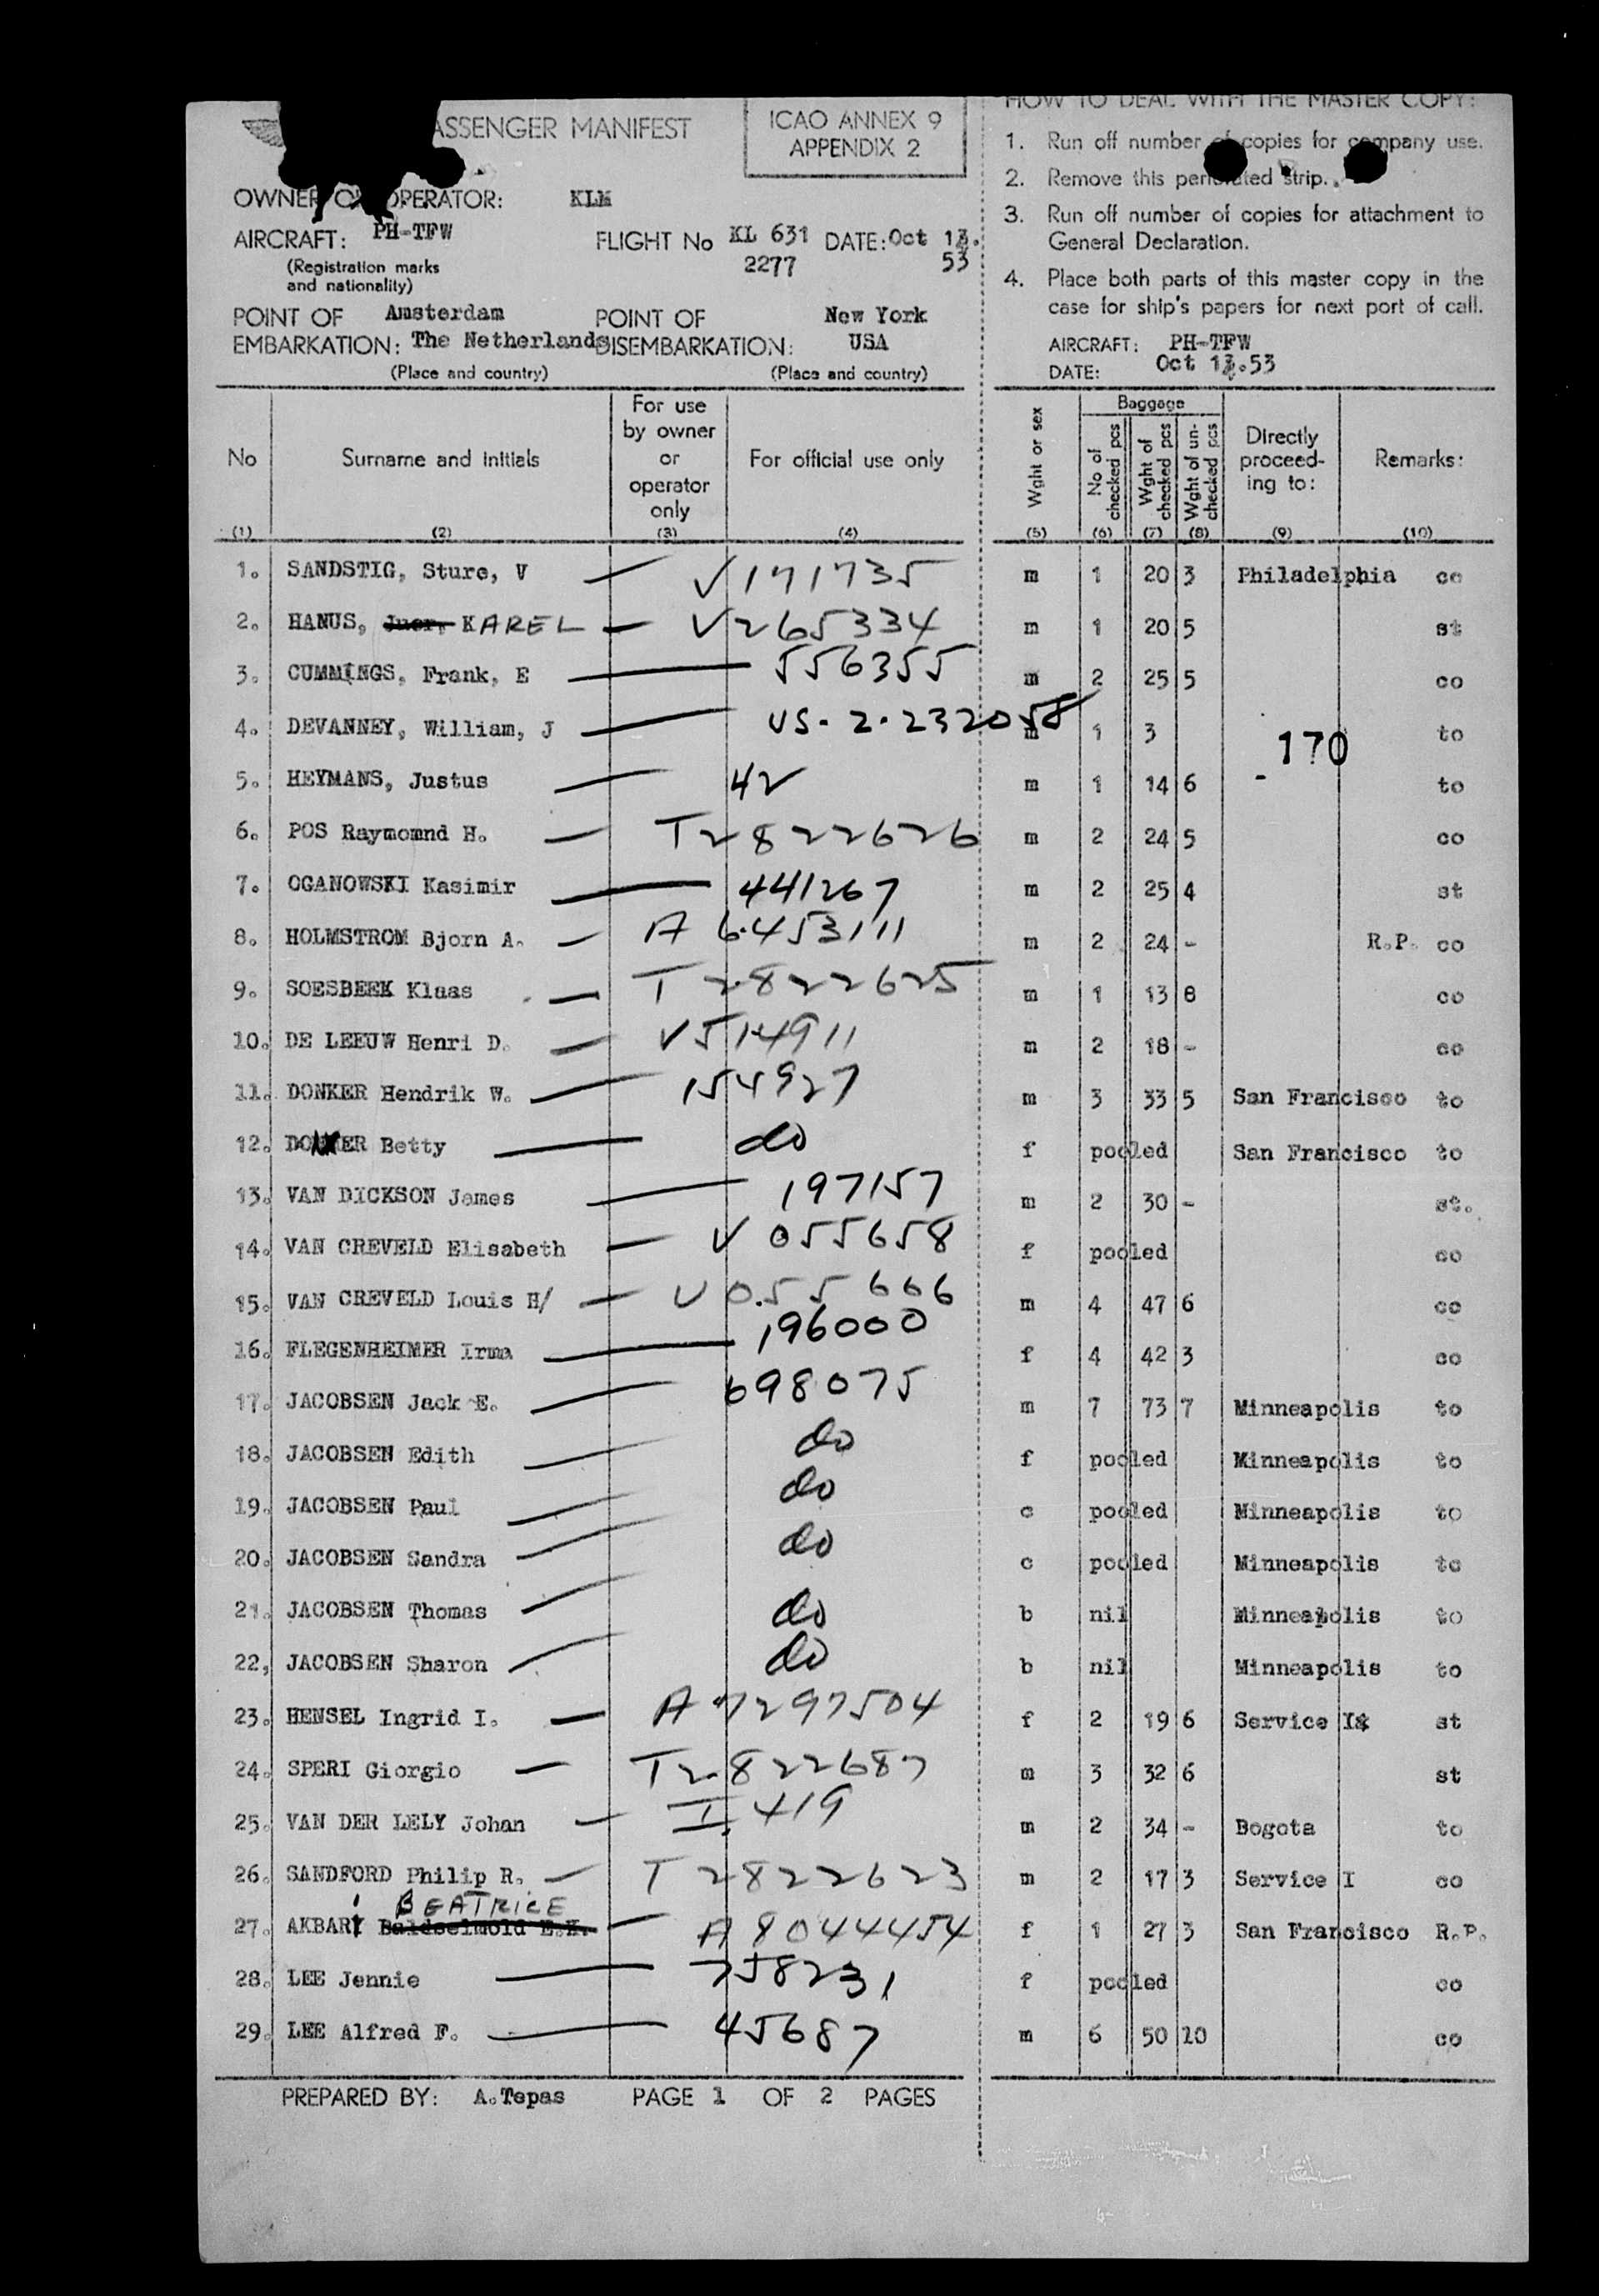 ASSENGER MANIFEST
ICAO ANNEX 9
APPENDIX 2
HOW TO DEAL WITH THE MASTER COPY:
1. Run off number of copies for company use.
2. Remove this perforated strip.
3. Run off number of copies for attachment to
General Declaration.
4. Place both parts of this master copy in the
case for ship's papers for next port of call.
AIRCRAFT: PH-TFW
DATE: Oct 13.53
OWNER OR OPERATOR: KLM
AIRCRAFT: PH-TFW FLIGHT No KL 631 DATE: Oct 13.
(Registration marks 2277 53
and nationality)
POINT OF Amsterdam POINT OF New York
EMBARKATION: The Netherlands DISEMBARKATION: USA
(Place and country) (Place and country)
No Surname and initials For use by owner or operator only For official use only Wght or sex Baggage No of checked pcs Wght of checked pcs Wght of un-checked pcs Directly proceed-ing to: Remarks:
(1) (2) (3) (4) (5) (6) (7) (8) (9) (10)
1. SANDSTIG, Sture, V V171735 m 1 20 3 Philadelphia co
2. HANUS, KAREL V265334 m 1 20 5 st
3. CUMMINGS, Frank, E 556355 m 2 25 5 co
4. DEVANNEY, William, J US-2-232058 m 1 3 to
170
5. HEYMANS, Justus 42 m 1 14 6 to
6. POS Raymomnd H. T2822626 m 2 24 5 co
7. OGANOWSKI Kasimir 441267 m 2 25 4 st
8. HOLMSTROM Bjorn A. A 6453111 m 2 24 - R.P. co
9. SOESBEEK Klaas T 2822625 m 1 13 8 co
10. DE LEEUW Henri D. V514911 m 2 18 - co
11. DONKER Hendrik W. 154927 m 3 33 5 San Francisco to
12. DONKER Betty do f pooled San Francisco to
13. VAN DICKSON James 197157 m 2 30 - st.
14. VAN CREVELD Elisabeth V 055658 f pooled co
15. VAN CREVELD Louis H/ V 055666 m 4 47 6 co
16. FLEGENHEIMER Irma 196000 f 4 42 3 co
17. JACOBSEN Jack E. 698075 m 7 73 7 Minneapolis to
18. JACOBSEN Edith do f pooled Minneapolis to
19. JACOBSEN Paul do c pooled Minneapolis to
20. JACOBSEN Sandra do c pooled Minneapolis to
21. JACOBSEN Thomas do b nil Minneapolis to
22, JACOBSEN Sharon do b nil Minneapolis to
23. HENSEL Ingrid I. A 7297504 f 2 19 6 Service I st
24. SPERI Giorgio T2822687 m 3 32 6 st
25. VAN DER LELY Johan I, 419 m 2 34 - Bogota to
26. SANDFORD Philip R. T 2822623 m 2 17 3 Service I co
BEATRICE
27. AKBARI A 8044454 f 1 27 3 San Francisco R.P.
28. LEE Jennie 758231 f pooled co
29. LEE Alfred F. 45687 m 6 50 10 co
PREPARED BY: A.Tepas PAGE 1 OF 2 PAGES